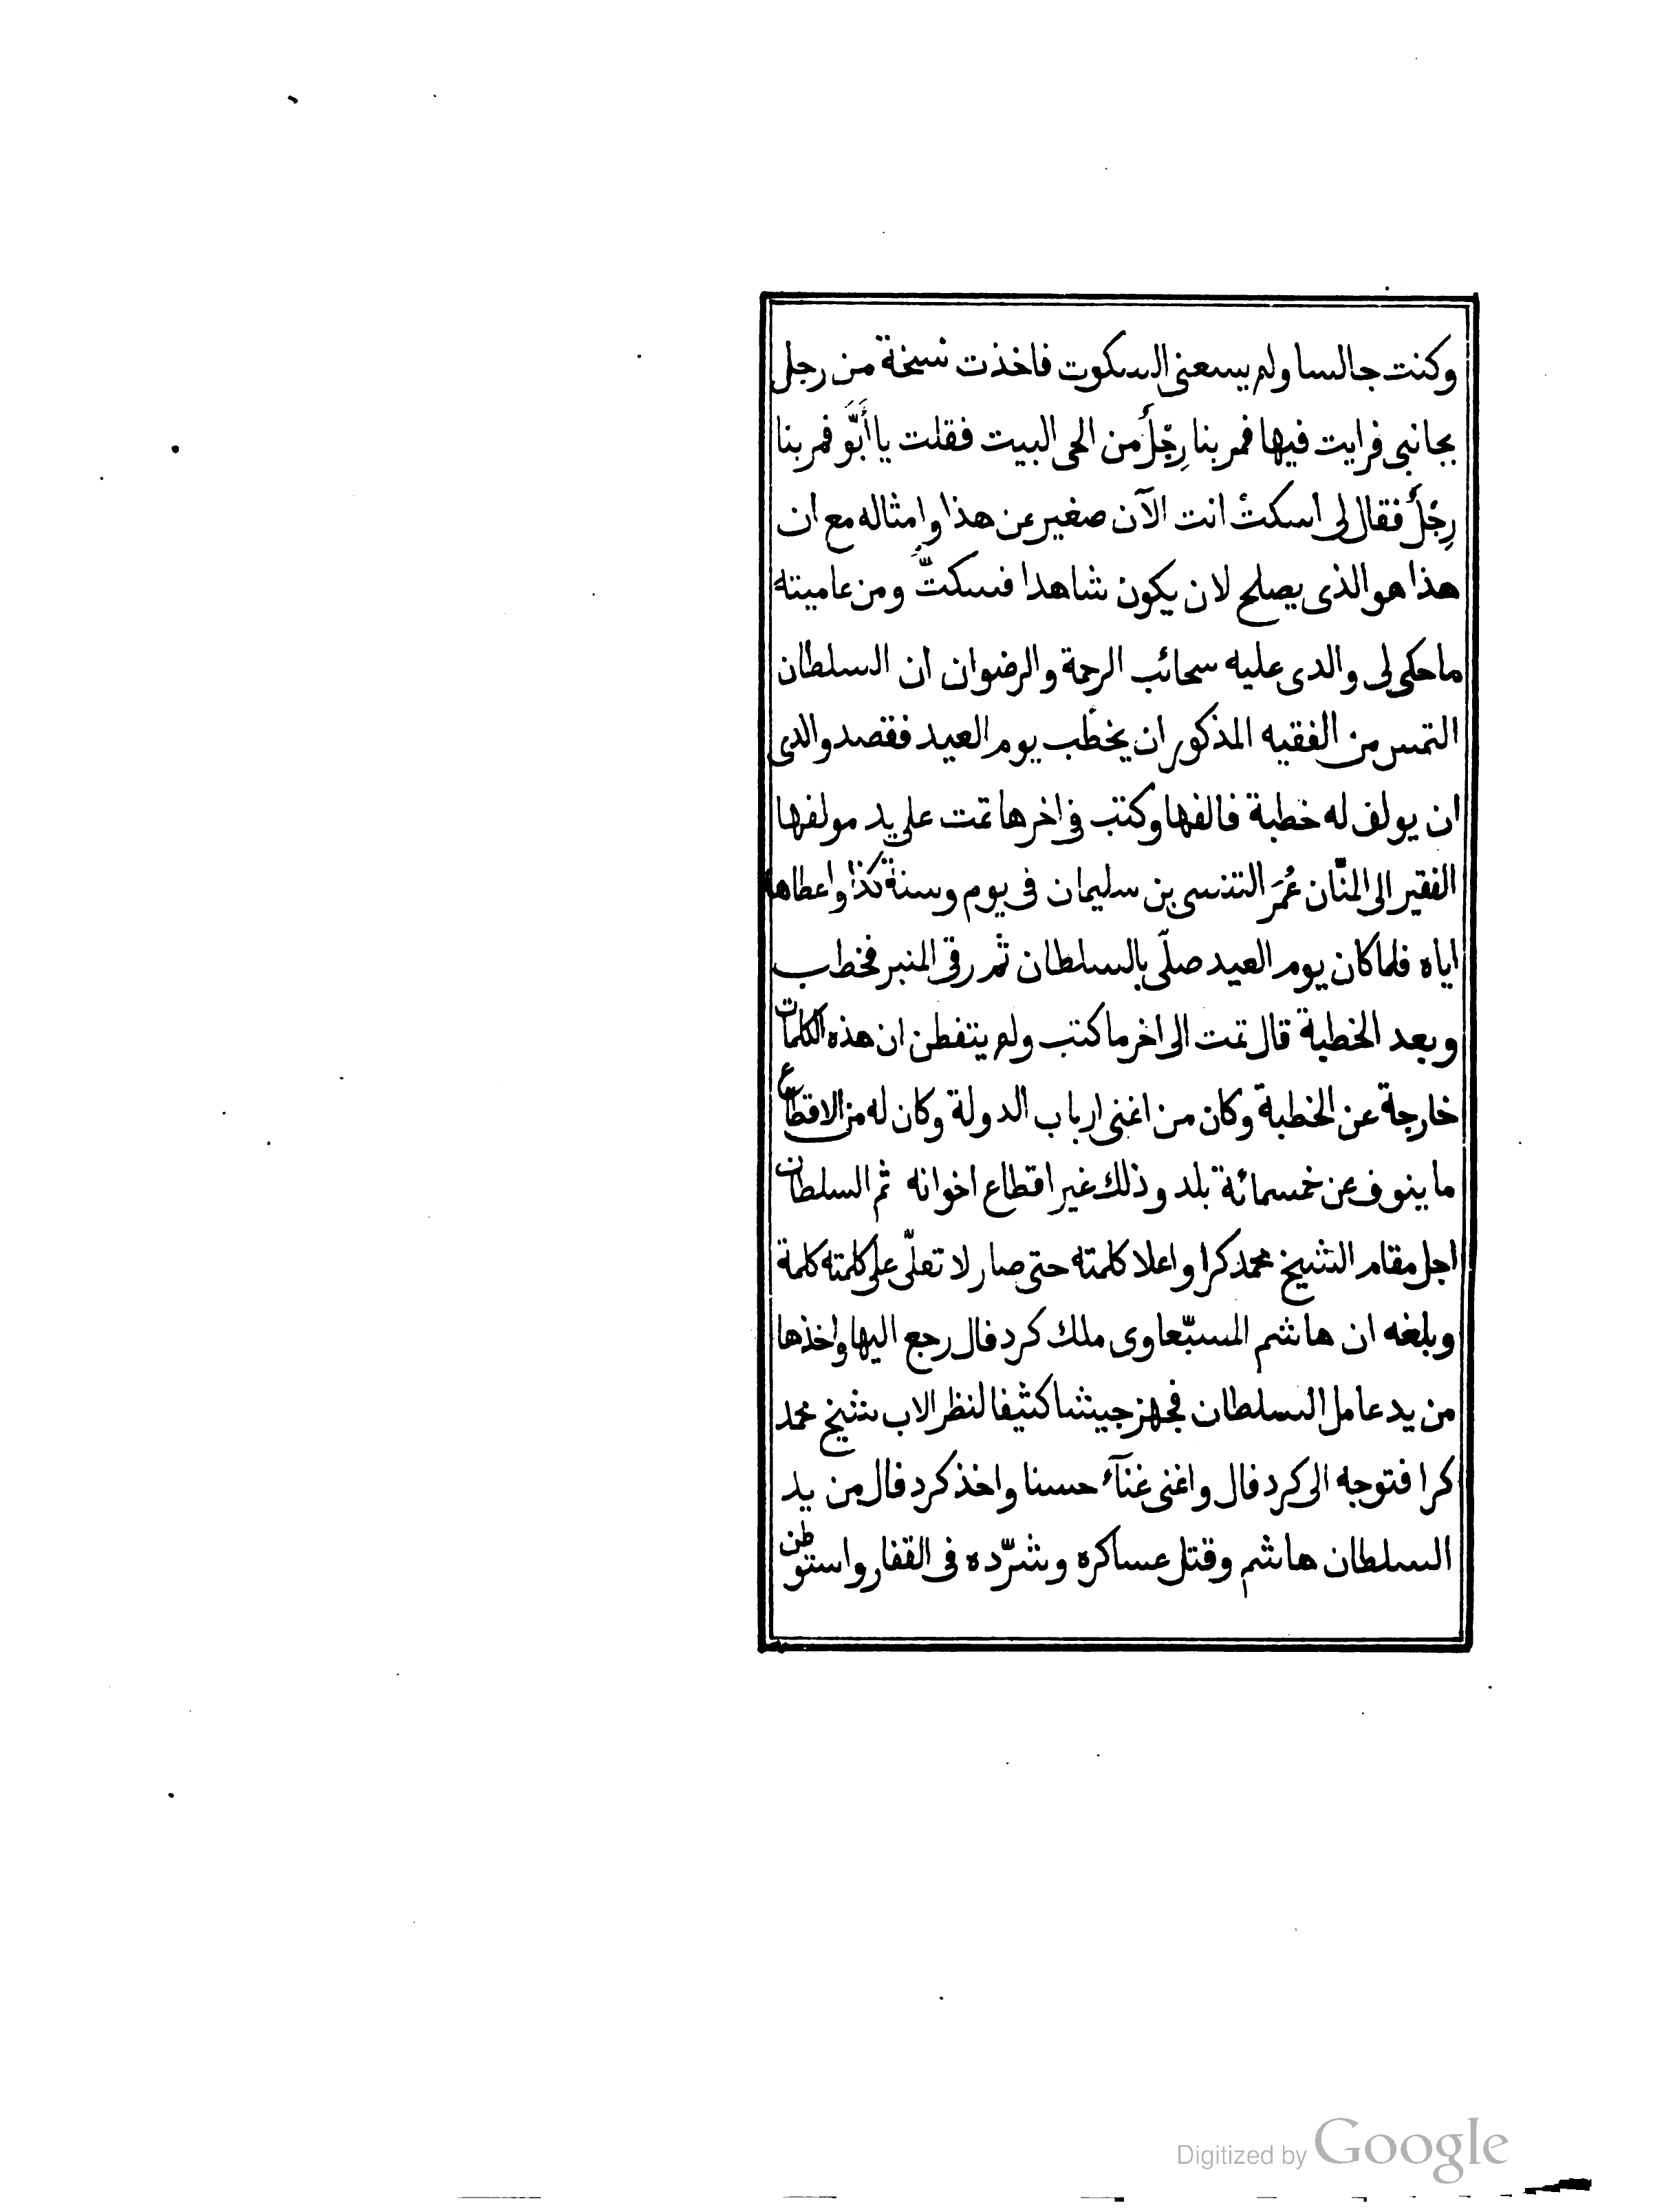 وكنت جالسا ولم يسعنى السكوت فاخذت نسخة من رجل
بجانبى فرايت فيها فمر بنا رِجْلٌ من الحى البيت فقلت يا أَبَّو فمر بنا
رِجْلٌ فقال لى اسكتْ انت الآن صغير عن هذا وامثاله مع ان
هذا هو الذى يصلح لان يكون شاهدا فسكتُّ ومن عاميته
ما حكى لى والدى عليه سحائب الرحمة والرضوان ان السلطان
التمس من الفقيه المذكور ان يخطب يوم العيد فقصد والدى
ان يولف له خطبة فالفها وكتب فى اخرها تمت على يد مولفها
الفقير الى المنّان عُمَر التنسى بن سليمان فى يوم وسنة كذا واعطاها
اياه فلما كان يوم العيد صلّى بالسلطان ثم رقى المنبر فخطب
وبعد الخطبة قال تمت الى اخر ما كتب ولم يتفطن ان هذه الكلمات
خارجة عن الخطبة وكان من اغنى ارباب الدولة وكان له من الاقطاع
ما ينوف عن خمسمائة بلد وذلك غير اقطاع اخوانه ثم السلطان
اجل مقام الشيخ محمد كرا واعلا كلمته حتى صار لا تعلّى على كلمته كلمة
وبلغه ان هاشم المسبّعاوى ملك كردفال رجع اليها واخذها
من يد عامل السلطان فجهز جيشا كثيفا لنظر الاب شيخ محمد
كرا فتوجه الى كردفال واغنى غنآء حسنا واخذ كردفال من يد
السلطان هاشم وقتل عساكره وشرّده فى القفار واستوطن
Digitized by Google